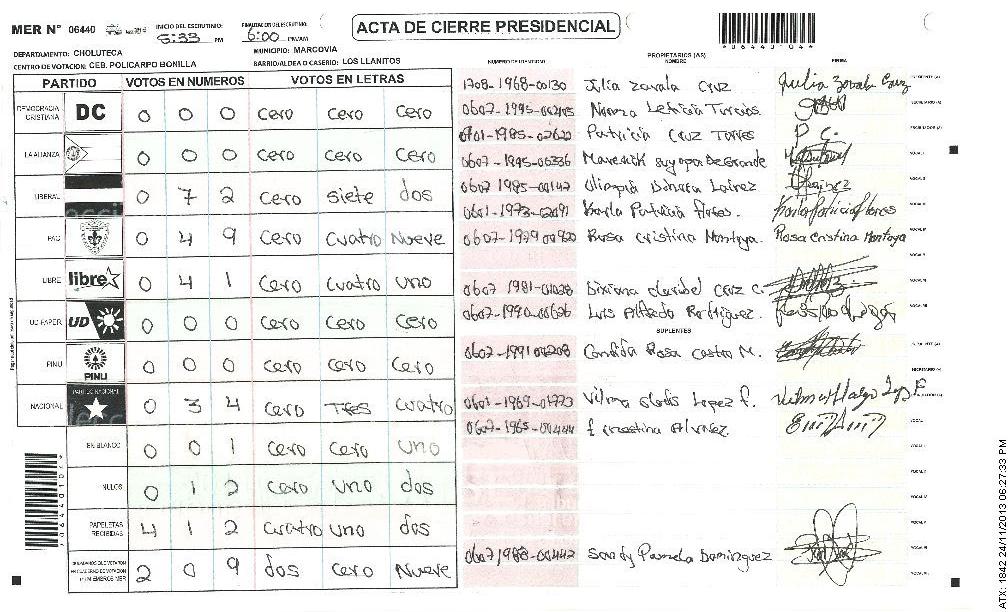 MER N° 06440
INICIO DEL ESCRUTINIO: 5:33 PM
FINALIZACION DEL ESCRUTINIO: 6:00 PM/AM
ACTA DE CIERRE PRESIDENCIAL
*06440104*
DEPARTAMENTO: CHOLUTECA
MUNICIPIO: MARCOVIA
CENTRO DE VOTACION: CEB. POLICARPO BONILLA
BARRIO/ALDEA O CASERIO: LOS LLANITOS
PARTIDO VOTOS EN NUMEROS VOTOS EN LETRAS
DEMOCRACIA CRISTIANA DC 0 0 0 cero cero cero
LA ALIANZA 0 0 0 cero cero cero
LIBERAL 0 7 2 cero siete dos
PAC 0 4 9 cero cuatro Nueve
LIBRE libre 0 4 1 cero cuatro uno
UD FAPER UD 0 0 0 cero cero cero
PINU PINU 0 0 0 cero cero cero
NACIONAL PARTIDO NACIONAL 0 3 4 cero Tres cuatro
EN BLANCO 0 0 1 cero cero uno
NULOS 0 1 2 cero uno dos
PAPELETAS RECIBIDAS 4 1 2 cuatro uno dos
2 0 9 dos cero Nueve
NUMERO DE IDENTIDAD
PROPIETARIOS (AS)
NOMBRE
FIRMA
1708-1968-00130 Julia zavala cruz Julia Zavala Cruz
Norma Leticia Turcios
Patricia Cruz Torres P C.
0607-1995-00336 Maverick
0607 1985-00147 Olimpia
0601-1973-02091 Karla Patricia flores. Karla Patricia Flores
Rosa cristina Montoya. Rosa Cristina Montoya
0607 1981-01028 cruz c.
0607-1990-00626 Luis Alfredo Rodriguez.
SUPLENTES
0607-1991 00208 Candida Rosa castro M.
0601-1969-01773 Vilma Lopez f.
0607-1965-00444 Ernestina Alvarez
0607 1988-00442 Sandy Pamela Dominguez
*06440104*
ATX: 1842 24/11/2013 06:27:33 PM